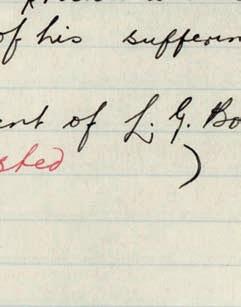 of his sufferin
ent of L. G. Bo
sted )